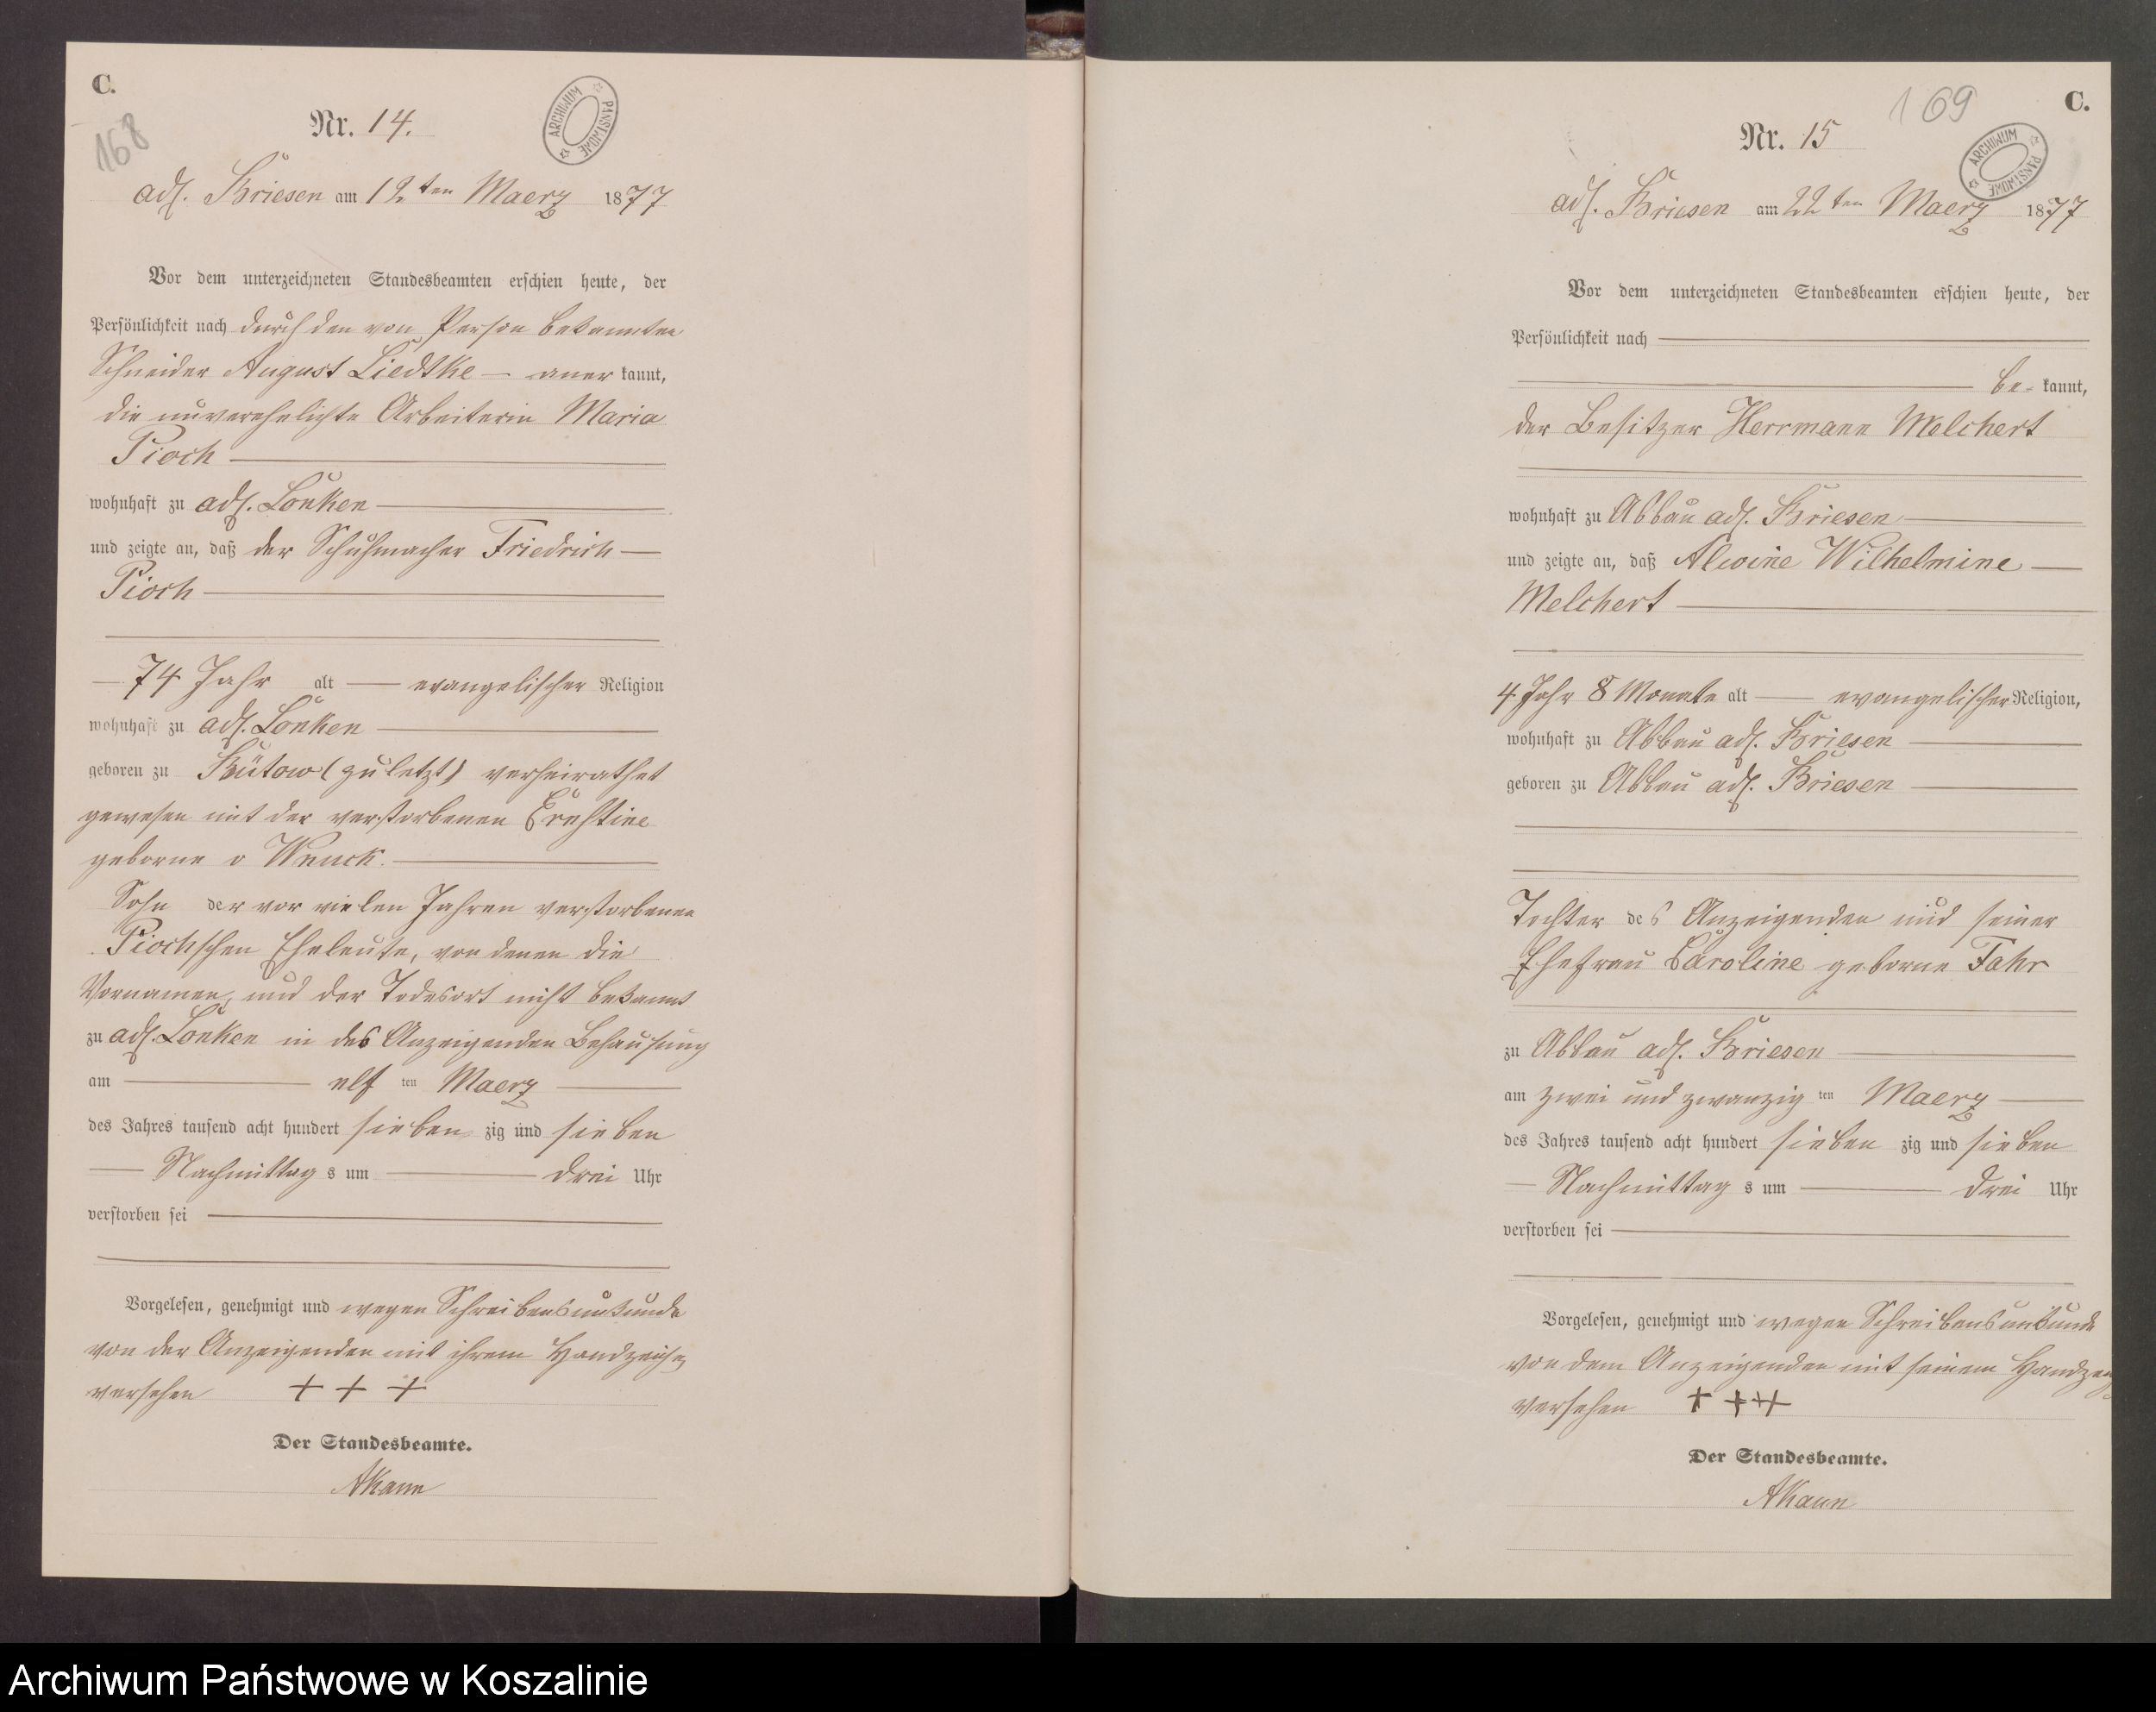 C.
168
Nr. 14.
ARCHIWUM PAŃSTWOWE
adl. Briesen am 12ten Maerz 1877
Vor dem unterzeichneten Standesbeamten erschien heute, der
Persönlichkeit nach durch den von Person bekannten
Schneider August Liedtke — aner kannt,
die unverehelichte Arbeiterin Maria
Pioch
wohnhaft zu adl. Lonken
und zeigte an, daß der Schuhmacher Friedrich
Pioch
74 Jahr alt evangelischer Religion
wohnhaft zu adl. Lonken
geboren zu Bütow (zuletzt) verheirathet
gewesen mit der verstorbenen
geborne
Sohn der vor vielen Jahren verstorbenen
Piochschen Eheleute, von denen die
Vornamen, und der Todesort nicht bekannt
zu adl. Lonken in des Anzeigenden Behausung
am elf ten Maerz
des Jahres tausend acht hundert sieben zig und sieben
Nachmittag s um drei Uhr
verstorben sei
Vorgelesen, genehmigt und wegen Schreibensunkunde
von der Anzeigenden mit ihrem Handzeichen
versehen + + +
Der Standesbeamte.
C.
169
Nr. 15
ARCHIWUM PAŃSTWOWE
adl. Briesen am 22ten Maerz 1877
Vor dem unterzeichneten Standesbeamten erschien heute, der
Persönlichkeit nach
be- kannt,
der Besitzer Herrmann Melchert
wohnhaft zu Abbau adl. Briesen
und zeigte an, daß Alwine Wilhelmine
Melchert
4 Jahr 8 Monate alt evangelischer Religion,
wohnhaft zu Abbau adl. Briesen
geboren zu Abbau adl. Briesen
Tochter des Anzeigenden und seiner
Ehefrau Caroline geborne Fahr
zu Abbau adl. Briesen
am zwei und zwanzig ten Maerz
des Jahres tausend acht hundert sieben zig und sieben
Nachmittag s um drei Uhr
verstorben sei
Vorgelesen, genehmigt und wegen Schreibensunkunde
von dem Anzeigenden mit seinem
versehen + + + +
Der Standesbeamte.
Archiwum Państwowe w Koszalinie